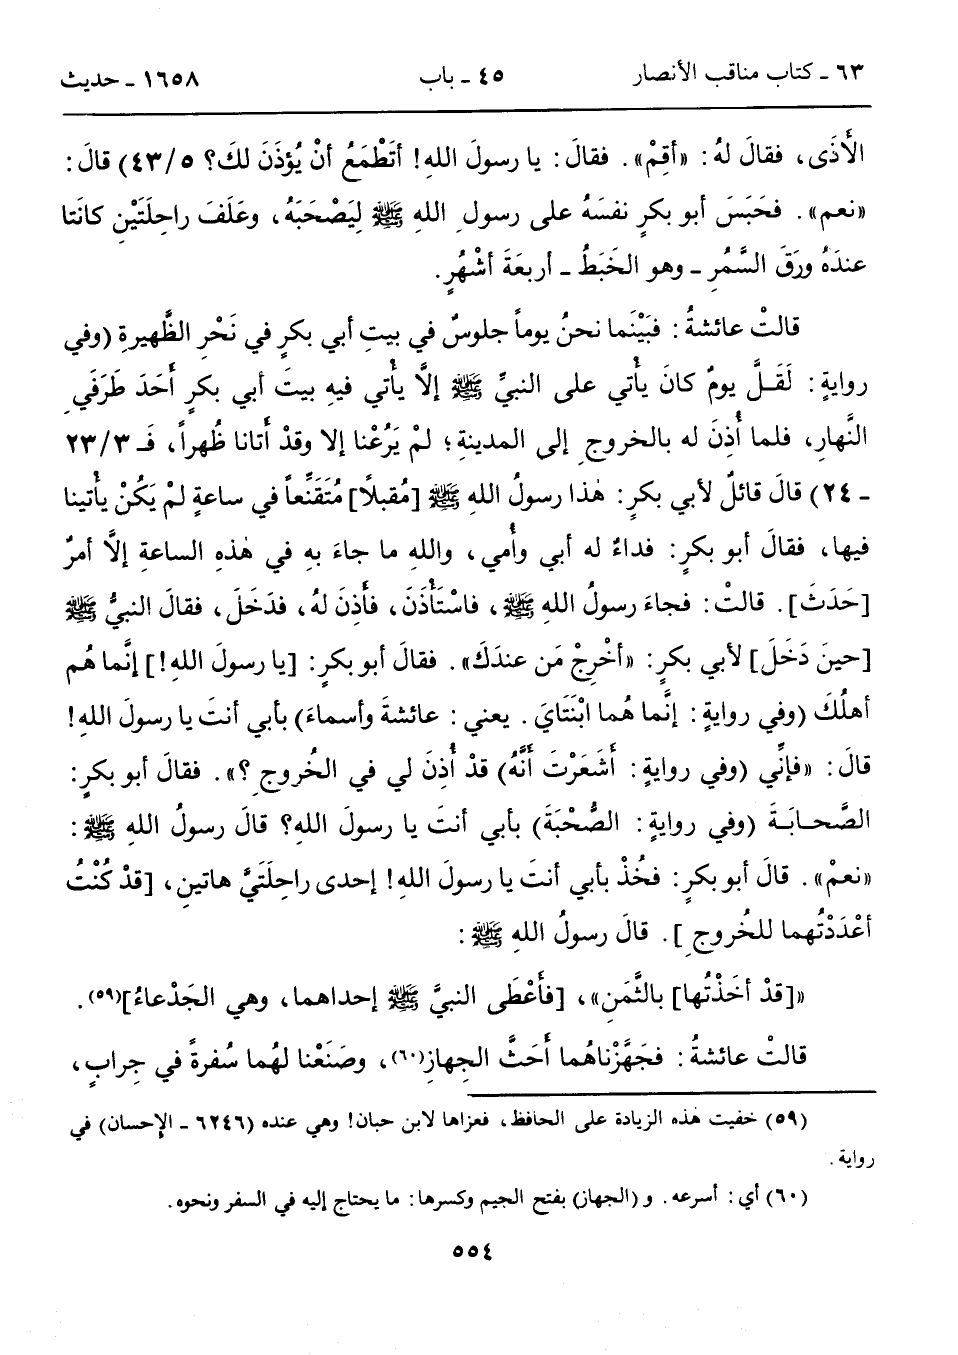 ٦٣ ـ كتاب مناقب الأنصار ٤٥ ـ باب ١٦٥٨ ـ حديث
الأَذَى، فقالَ لهُ: «أقِمْ». فقالَ: يا رسولَ اللهِ! أتَطْمَعُ أنْ يُؤذَنَ لكَ؟ ٤٣/٥) قالَ:
«نعم». فحَبَسَ أبو بكرٍ نفسَهُ على رسولِ اللهِ ﷺ لِيَصْحَبَهُ، وعَلَفَ راحِلَتَيْنِ كانَتا
عندَهُ ورَقَ السَّمُرِ ـ وهو الخَبَطُ ـ أربعَةَ أشْهُرٍ.
قالتْ عائشةُ: فبَيْنَما نحنُ يوماً جلوسٌ في بيتِ أبي بكرٍ في نَحْرِ الظَّهيرةِ (وفي
روايةٍ: لَقَلَّ يومٌ كانَ يأْتي على النبيِّ ﷺ إلَّا يأْتي فيهِ بيتَ أبي بكرٍ أَحَدَ طَرَفَي
النَّهارِ، فلما أُذِنَ له بالخروجِ إلى المدينةِ؛ لمْ يَرُعْنا إلا وقدْ أتانا ظُهراً، فَـ ٢٣/٣
ـ ٢٤) قالَ قائلٌ لأبي بكرٍ: هٰذا رسولُ اللهِ ﷺ [مُقبلًا] مُتَقَنِّعاً في ساعةٍ لمْ يَكُنْ يأْتينا
فيها، فقالَ أبو بكرٍ: فداءٌ له أبي وأُمي، واللهِ ما جاءَ بهِ في هٰذهِ الساعةِ إلَّا أمرٌ
[حَدَثَ]. قالتْ: فجاءَ رسولُ اللهِ ﷺ، فاسْتَأْذَنَ، فأَذِنَ لهُ، فدَخَلَ، فقالَ النبيُّ ﷺ
[حينَ دَخَلَ] لأبي بكرٍ: «أخْرِجْ مَن عندَكَ». فقالَ أبو بكرٍ: [يا رسولَ اللهِ!] إنَّما هُم
أهلُكَ (وفي روايةٍ: إنَّما هُما ابْنَتَايَ. يعني: عائشةَ وأسماءَ) بأبي أنتَ يا رسولَ اللهِ!
قالَ: «فإنِّي (وفي روايةٍ: أَشَعَرْتَ أنَّهُ) قدْ أُذِنَ لي في الخُروجِ؟». فقالَ أبو بكرٍ:
الصَّحابَةَ (وفي روايةٍ: الصُّحْبَةَ) بأبي أنتَ يا رسولَ اللهِ؟ قالَ رسولُ اللهِ ﷺ:
«نعمْ». قالَ أبو بكرٍ: فخُذْ بأبي أنتَ يا رسولَ اللهِ! إحدى راحِلَتَيَّ هاتينِ، [قدْ كُنْتُ
أعْدَدْتُهما للخُروجِ]. قالَ رسولُ اللهِ ﷺ:
«[قدْ أخَذْتُها] بالثَّمَنِ»، [فأَعْطَى النبيَّ ﷺ إحداهما، وهي الجَدْعاءُ](٥٩).
قالتْ عائشةُ: فجَهَّزْناهُما أَحَثَّ الجِهازِ(٦٠)، وصَنَعْنا لهُما سُفرةً في جِرابٍ،
(٥٩) خفيت هٰذه الزيادة على الحافظ، فعزاها لابن حبان! وهي عنده (٦٢٤٦ ـ الإحسان) في
رواية.
(٦٠) أي: أسرعه. و (الجهاز) بفتح الجيم وكسرها: ما يحتاج إليه في السفر ونحوه.
٥٥٤